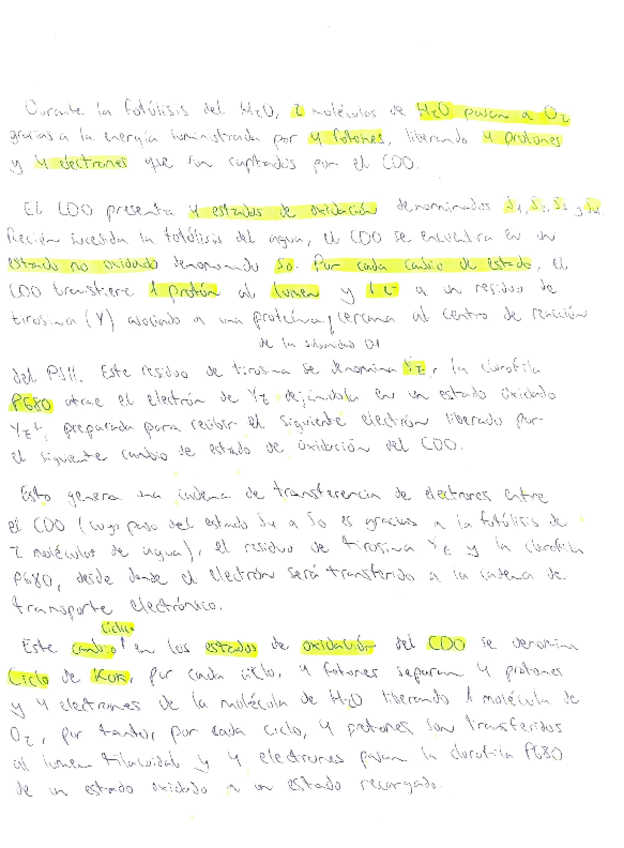 Durante la fotólisis del H2O, 2 moléculas de H2O pasan a O2
gracias a la energía suministrada por 4 fotones, liberando 4 protones
y 4 electrones que son captados por el CDO.
El CDO presenta 4 estados de oxidación denominados S1, S2, S3 y S4.
Recién sucedida la fotólisis del agua, el CDO se encuentra en un
estado no oxidado denominado S0. Por cada cambio de estado, el
CDO transfiere 1 protón al lumen y 1 e- a un residuo de
tirosina (Y) asociado a una proteína, cercana al centro de reacción
de la subunidad D1
del PSII. Este residuo de tirosina se denomina YZ, la clorofila
P680 atrae el electrón de YZ dejándola en un estado oxidado
YZ+, preparada para recibir el siguiente electrón liberado por
el siguiente cambio de estado de oxidación del CDO.
Esto genera una cadena de transferencia de electrones entre
el CDO (cuyo paso del estado S4 a S0 es gracias a la fotólisis de
2 moléculas de agua), el residuo de tirosina YZ y la clorofila
P680, desde donde el electrón será transferido a la cadena de
transporte electrónico.
cíclico
Este cambio en los estados de oxidación del CDO se denomina
Ciclo de Kok, por cada ciclo, 4 fotones separan 4 protones
y 4 electrones de la molécula de H2O liberando 1 molécula de
O2, por tanto, por cada ciclo, 4 protones son transferidos
al lumen tilacoidal y 4 electrones pasan la clorofila P680
de un estado oxidado a un estado recargado.